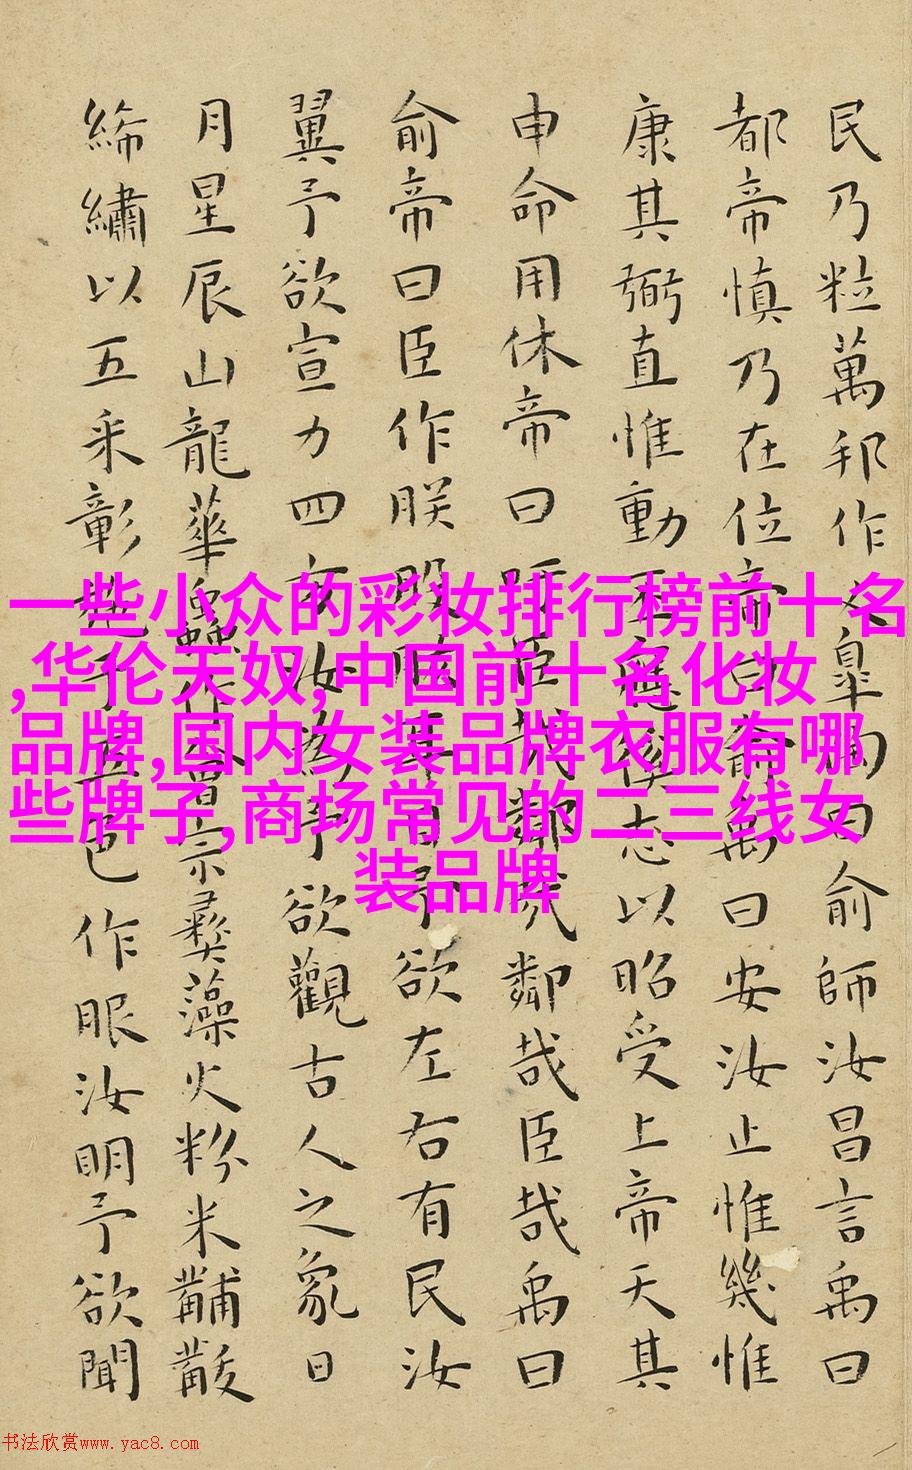 民乃粒萬邦作乂皐陶曰俞師汝昌言禹曰
都帝慎乃在位帝曰俞禹曰安汝止惟幾惟
康其弼直惟動丕應徯志以昭受上帝天其
申命用休帝曰吁臣哉鄰哉鄰哉臣哉禹曰
俞帝曰臣作朕股肱耳目予欲左右有民汝
翼予欲宣力四方汝為予欲觀古人之象日
月星辰山龍華蟲作會宗彝藻火粉米黼黻
絺繡以五采彰施于五色作服汝明予欲聞
一些小众的彩妆排行榜前十名
,华伦天奴,中国前十名化妆
品牌,国内女装品牌衣服有哪
些牌子,商场常见的二三线女
装品牌
书法欣赏www.yac8.com